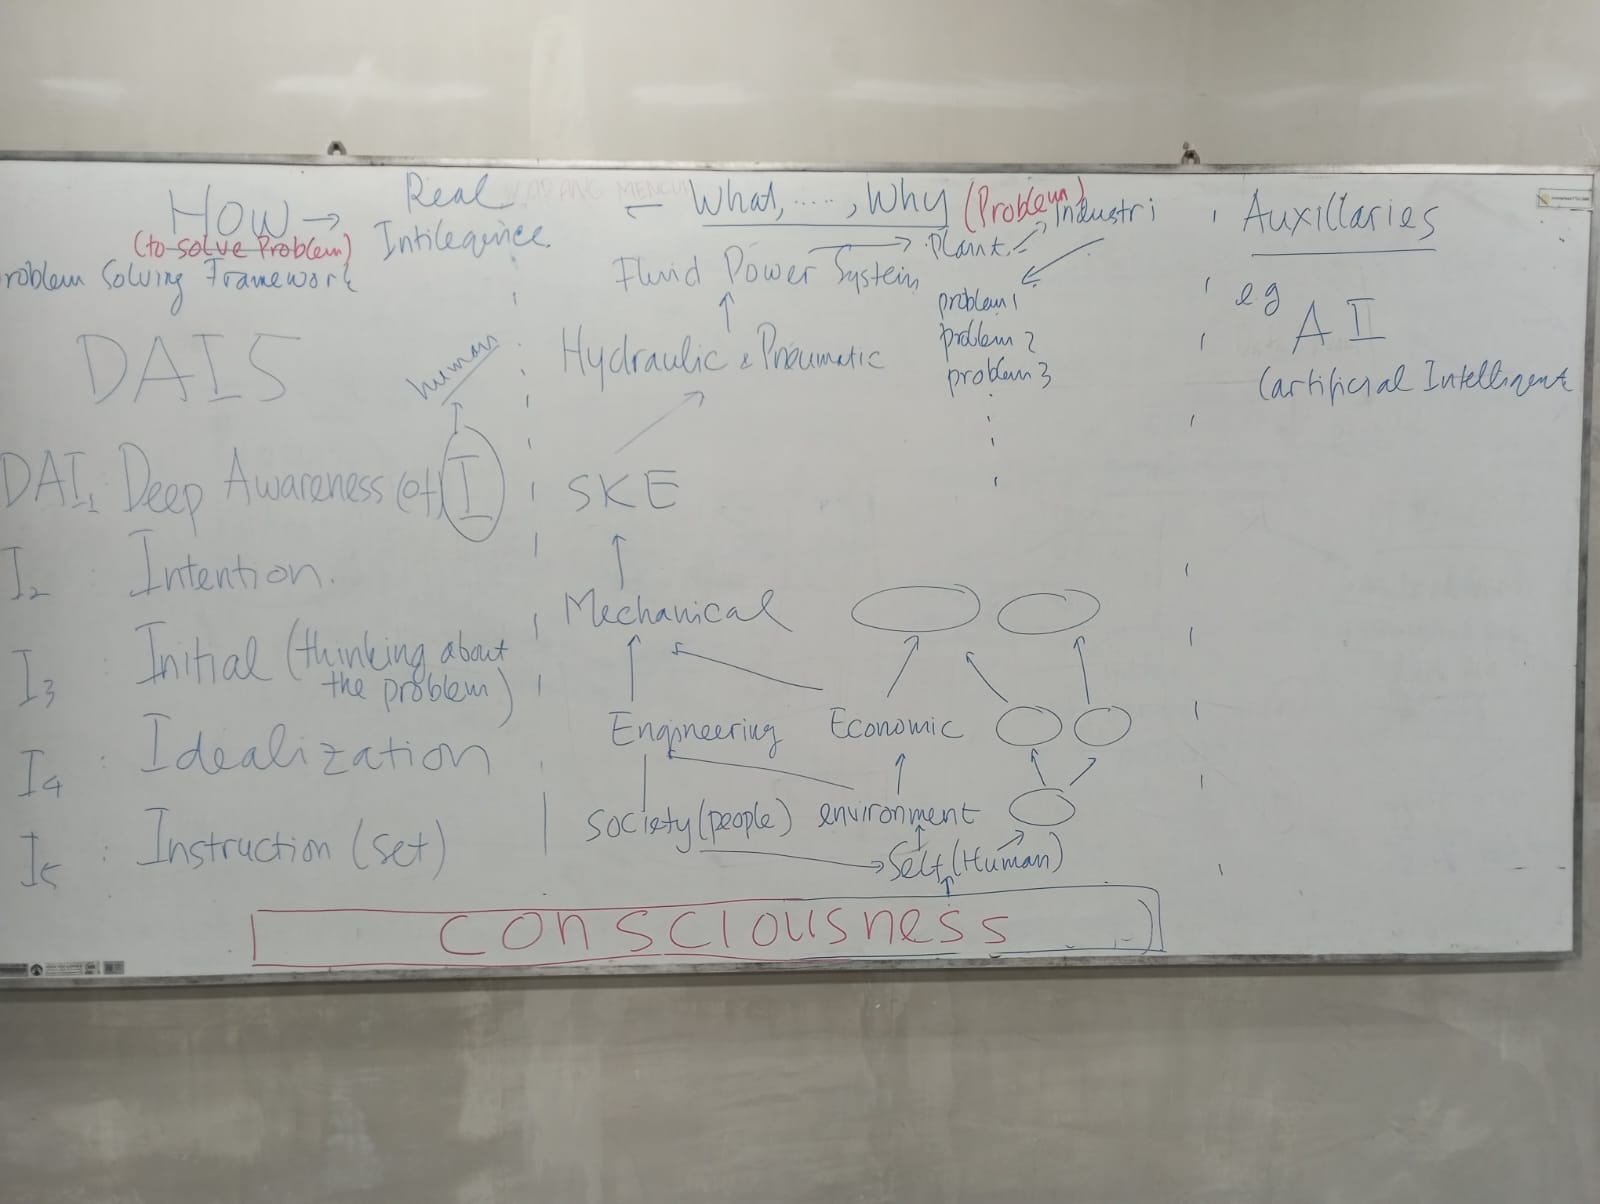 HOW →
(to solve Problem)
roblem Solving Framework
Real
Intilegence
DAI5
human
DAI, Deep Awareness (of) I
I2 : Intention.
I3 : Initial (thinking about
the problem)
I4 : Idealization
I5 : Instruction (set)
← What, ....., Why (Problem)
Fluid Power System → Plant → Industri
problem 1
problem 2
problem 3
Hydraulic & Pneumatic
SKE
Mechanical
Engineering Economic
society (people) environment
Self (Human)
consciousness
Auxillaries
eg
AI
(artificial Intelligent